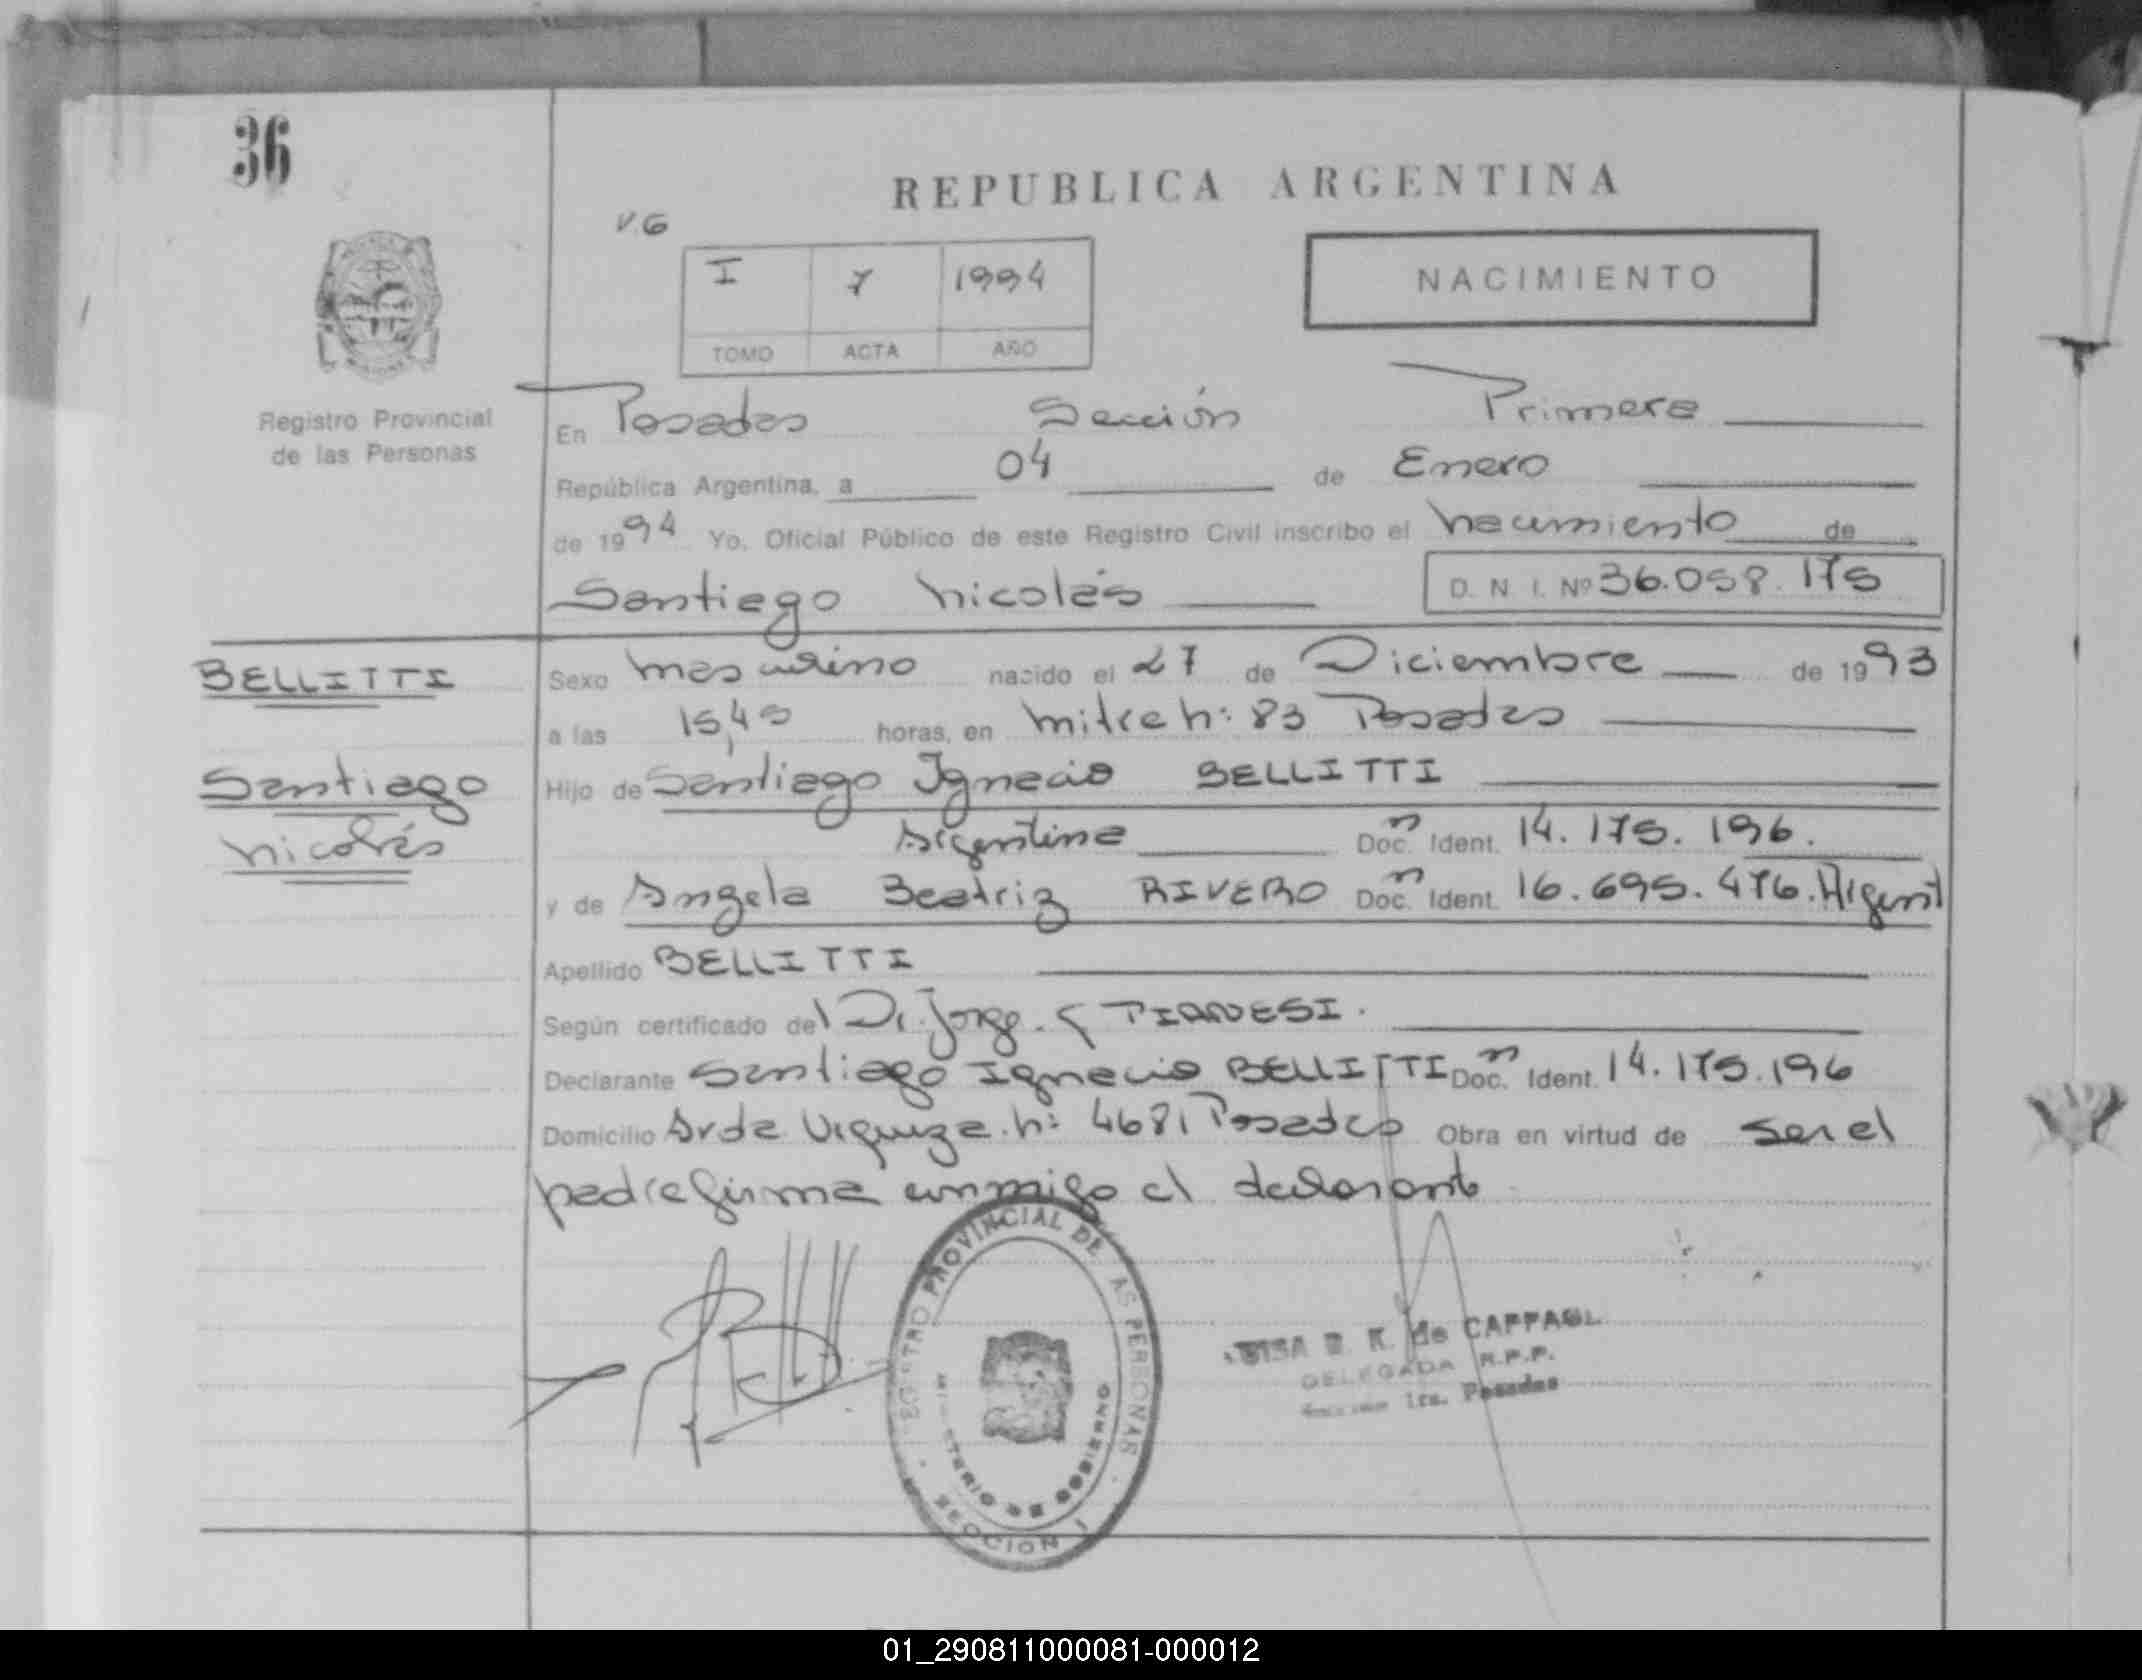 36
REPUBLICA ARGENTINA
V.G
I 7 1994
TOMO ACTA AÑO
NACIMIENTO
Registro Provincial
de las Personas
En Posadas Sección Primera
República Argentina, a 04 de Enero
de 1994 Yo, Oficial Público de este Registro Civil inscribo el nacimiento de
Santiago Nicolás D. N. I. Nº 36.058.175
BELLITTI
Santiago
Nicolás
Sexo masculino nacido el 27 de Diciembre de 1993
a las 15,45 horas, en Mitre Nº 83 Posadas
Hijo de Santiago Ignacio BELLITTI
Argentina Doc. Ident. 14.175.196.
y de Angela Beatriz RIVERO Doc. Ident. 16.695.476. Argent
Apellido BELLITTI
Según certificado del Dr. Jorge PIANESI.
Declarante Santiago Ignacio BELLITTI Doc. Ident. 14.175.196
Domicilio Avda Urquiza Nº 4681 Posadas Obra en virtud de ser el
padre firma conmigo el declarante
REGISTRO PROVINCIAL DE LAS PERSONAS
MINISTERIO DE GOBIERNO
SECCION 1
de
DELEGADA R.P.P.
1ra. Posadas
01_290811000081-000012